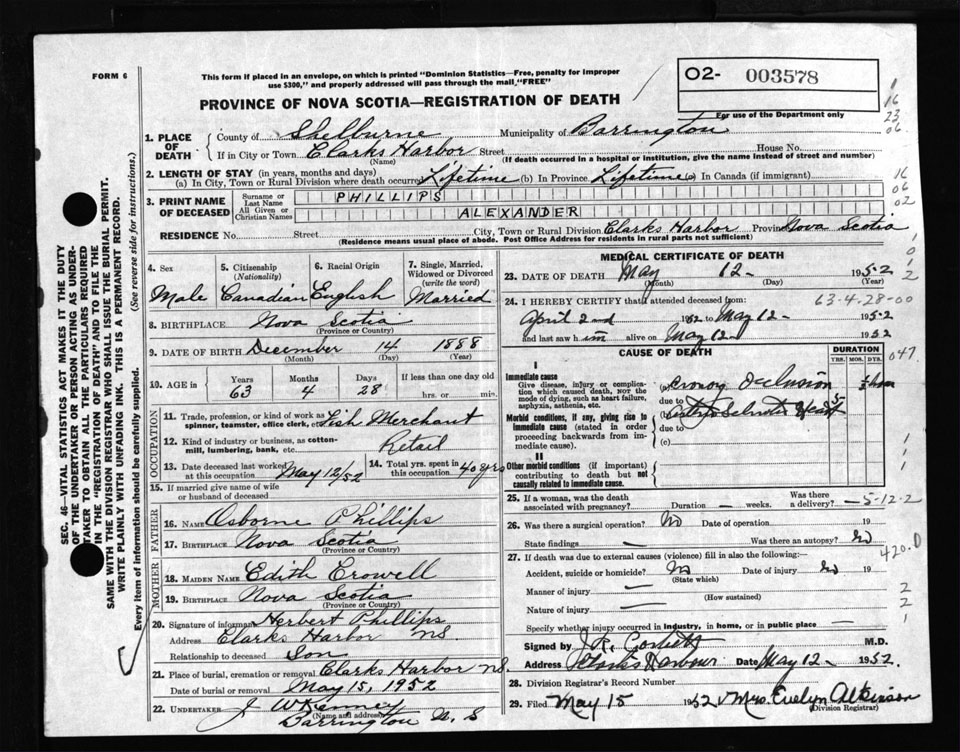 FORM 6
This form if placed in an envelope, on which is printed "Dominion Statistics—Free, penalty for improper
use $300," and properly addressed will pass through the mail "FREE"
PROVINCE OF NOVA SCOTIA—REGISTRATION OF DEATH
O2- 003578
For use of the Department only
1. PLACE OF DEATH
County of Shelburne Municipality of Barrington
If in City or Town Clarks Harbor Street House No.
(Name) (If death occurred in a hospital or institution, give the name instead of street and number)
2. LENGTH OF STAY (in years, months and days)
(a) In City, Town or Rural Division where death occurred Lifetime (b) In Province Lifetime (c) In Canada (if immigrant)
3. PRINT NAME OF DECEASED
Surname or Last Name PHILLIPS
All Given or Christian Names ALEXANDER
RESIDENCE No. Street City, Town or Rural Division Clarks Harbor Province Nova Scotia
(Residence means usual place of abode. Post Office Address for residents in rural parts not sufficient)
4. Sex Male
5. Citizenship (Nationality) Canadian
6. Racial Origin English
7. Single, Married, Widowed or Divorced (write the word) Married
8. BIRTHPLACE Nova Scotia
(Province or Country)
9. DATE OF BIRTH December 14 1888
(Month) (Day) (Year)
10. AGE in Years 63 Months 4 Days 28 If less than one day old hrs. or min.
OCCUPATION
11. Trade, profession, or kind of work as spinner, teamster, office clerk, etc. Fish Merchant
12. Kind of industry or business, as cotton-mill, lumbering, bank, etc. Retail
13. Date deceased last worked at this occupation May 12/52
14. Total yrs. spent in this occupation 40 yrs
15. If married give name of wife or husband of deceased
FATHER
16. NAME Osborne Phillips
17. BIRTHPLACE Nova Scotia
(Province or Country)
MOTHER
18. MAIDEN NAME Edith Crowell
19. BIRTHPLACE Nova Scotia
(Province or Country)
20. Signature of informant Herbert Phillips
Address Clarks Harbor NS.
Relationship to deceased Son
21. Place of burial, cremation or removal Clarks Harbor NS
Date of burial or removal May 15, 1952
22. UNDERTAKER J W Kenney
(Name and address)
Barrington N. S
MEDICAL CERTIFICATE OF DEATH
23. DATE OF DEATH May 12 1952
(Month) (Day) (Year)
24. I HEREBY CERTIFY that I attended deceased from:
April 2nd 1952 to May 12 1952
and last saw him alive on May 12 1952
CAUSE OF DEATH
DURATION
YRS. MOS. DYS.
I
Immediate cause
Give disease, injury or complication which caused death, not the mode of dying, such as heart failure, asphyxia, asthenia, etc.
(a) Occlusion
due to
Morbid conditions, if any, giving rise to immediate cause (stated in order proceeding backwards from immediate cause).
(b) Heart 5
due to
(c)
II
Other morbid conditions (if important) contributing to death but not causally related to immediate cause.
25. If a woman, was the death associated with pregnancy? Duration — weeks. Was there a delivery? —
26. Was there a surgical operation? No Date of operation 19
State findings — Was there an autopsy? No
27. If death was due to external causes (violence) fill in also the following:—
Accident, suicide or homicide? No Date of injury No 19
(State which)
Manner of injury —
(How sustained)
Nature of injury —
Specify whether injury occurred in industry, in home, or in public place —
Signed by J.R. M.D.
Address Clarks Harbour Date May 12 1952.
28. Division Registrar's Record Number
29. Filed May 15 1952 Mrs. Evelyn Atkinson
(Division Registrar)
1
16
23
06
16
06
02
63-4-28-00
047
5-12-2
420.0
SEC. 46—VITAL STATISTICS ACT MAKES IT THE DUTY
OF THE UNDERTAKER OR PERSON ACTING AS UNDER-
TAKER TO OBTAIN ALL THE PARTICULARS REQUIRED
IN THE "REGISTRATION OF DEATH" AND TO FILE THE
SAME WITH THE DIVISION REGISTRAR WHO SHALL ISSUE THE BURIAL PERMIT.
WRITE PLAINLY WITH UNFADING INK. THIS IS A PERMANENT RECORD.
Every item of information should be carefully supplied. (See reverse side for instructions.)